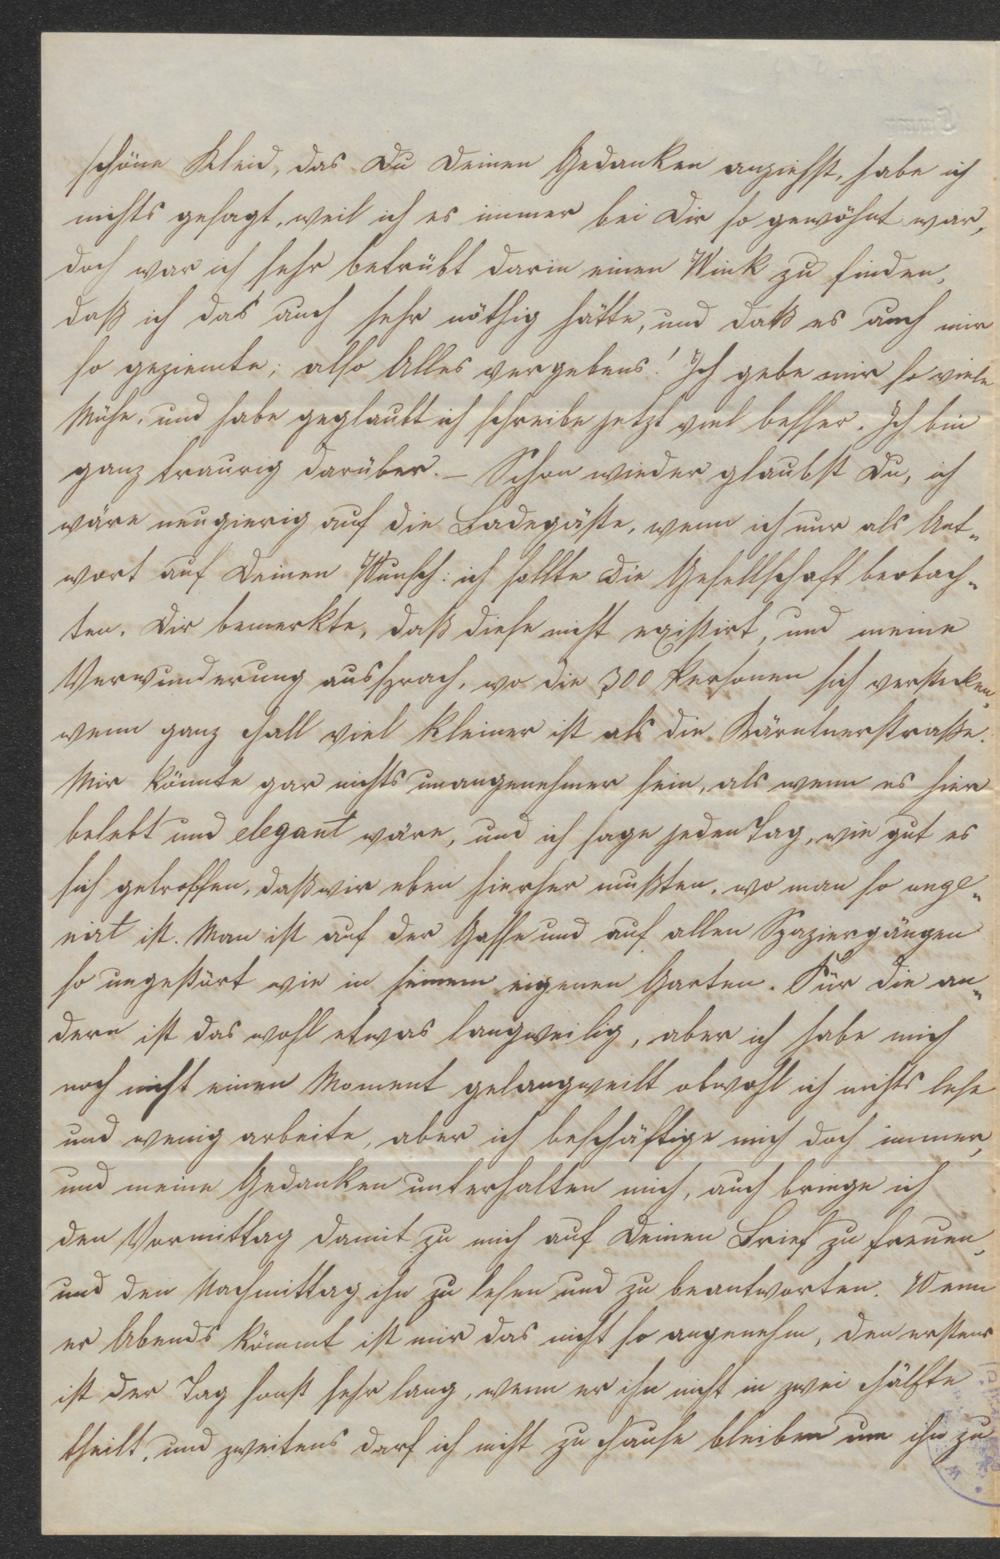 schöne Kleid, das Du Deinen Gedanken anziehst, habe ich
nichts gesagt, weil ich es immer bei Dir so gewöhnt war,
doch war ich sehr betrübt darin einen Wink zu finden,
daß ich das auch sehr nöthig hätte, und daß es auch mir
so geziemte; also Alles vergebens! Ich gebe mir so viele
Mühe, und habe geglaubt ich schreibe jetzt viel besser. Ich bin
ganz traurig darüber. – Schon wieder glaubst Du, ich
wäre neugierig auf die Badegäste, wenn ich nur als Ant„
wort auf Deinen Wunsch: ich sollte die Gesellschaft beobach„
ten. Dir bemerkte, daß diese nicht existirt, und meine
Verwunderung aussprach, wo die 300 Personen sich verstecken,
wenn ganz Hall viel kleiner ist als die Kärntnerstraße.
Mir könnte gar nichts unangenehmer sein, als wenn es hier
belebt und elegant wäre, und ich sage jeden Tag, wie gut es
sich getroffen, daß wir eben hierher mußten, wo man so unge„
nirt ist. Man ist auf der Gasse und auf allen Spaziergängen
so ungestört wie in seinem eigenen Garten. Für die an„
dern ist das wohl etwas langweilig, aber ich habe mich
noch nicht einen Moment gelangweilt obwohl ich nichts lese
und wenig arbeite, aber ich beschäftige mich doch immer,
und meine Gedanken unterhalten mich, auch bringe ich
den Vormittag damit zu mich auf Deinen Brief zu freuen,
und den Nachmittag ihn zu lesen und zu beantworten. Wenn
er Abends kömmt ist mir das nicht so angenehm, den erstens
ist der Tag sonst sehr lang, wenn er ihn nicht in zwei Hälfte
theilt, und zweitens darf ich nicht zu Hause bleiben um ihn zu